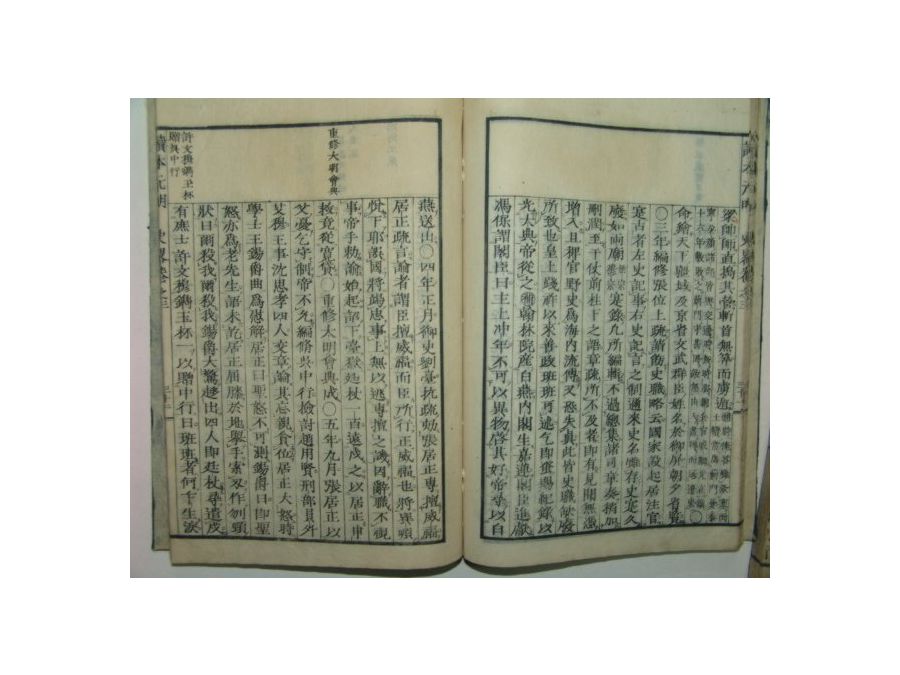 梁帥師直搗其營斬首無筭而虜遁
命繪天下疆域及京省文武群臣姓名於御屏朝夕省覽
〇三年編修張位上疏請飭史職略云國家設起居注官
寔古者左史記事右史記言之制邇來史名雖存寔久
廢如兩廟寔錄凡所編輯不過總集諸司章奏稍加
刪潤至于仗前柱下之語章疏所不及者即有見聞無憑
增入且稗官野史為海內流傳又恐失真此皆史職缺廢
所致也皇上踐祚以來善政班班可述乞即查舉紀錄以
光大典帝從之翰林院産白燕內閣生嘉蓮閣臣進獻
馮保謂閣臣曰主上冲年不可以異物啓其好帝華以白
燕送出〇四年正月御史劉臺抗疏劾張居正專擅威福
居正疏言諭者謂臣擅威福而臣所行正威福也將巽順
悅下耶誤國將竭忠事上無以逃專擅之譏因辭職不視
事帝手勅諭始起詔下臺獄廷杖一百遠戍之以居正申
救竟從寬貸〇重修大明會典成〇五年九月張居正以
父憂乞守制帝不允編修吳中行檢討趙用賢刑部員外
艾穆主事沈思孝四人交章論其忘親貪位居正大怒時
學士王錫爵曲為慰解居正曰聖怒不可測錫爵曰即聖
怒亦為老先生語未訖居正屈膝於地舉手索刃作刎頸
狀曰爾殺我爾殺我錫爵大驚趨出四人即廷杖尋遣戍
有庶士許文穆鐫玉杯一以贈中行曰班班者何卞生淚
重修大明會典
許文穆鐫玉杯
贈吳中行